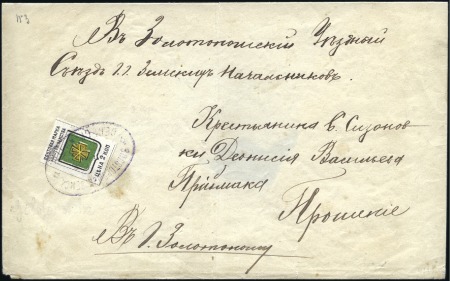 №3
Въ Золотоношскiй Уѣздный
Съѣздъ г.г. Земскихъ Начальниковъ.
Крестьянина с. Сизонов-
ки Дiонисiя Васильева
Прiймака
Прошенiе
Въ г. Золотоношу
ЦѢНА 2 КОП